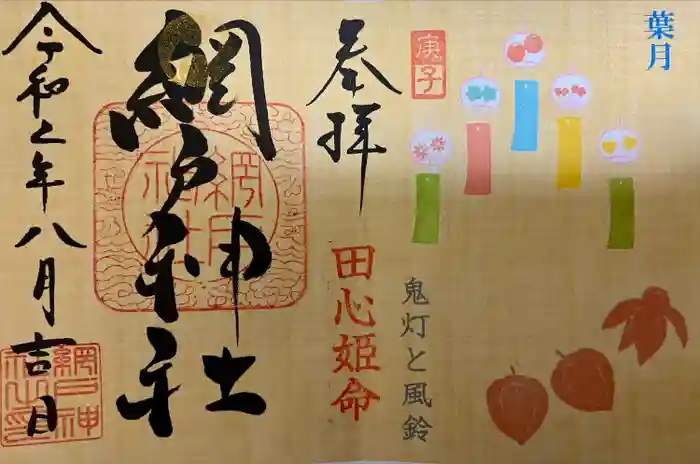 葉月
庚子
奉拝
鬼灯と風鈴
田心姫命
網戸神社
網戸
神社
令和二年八月吉日
網戸神
社之印